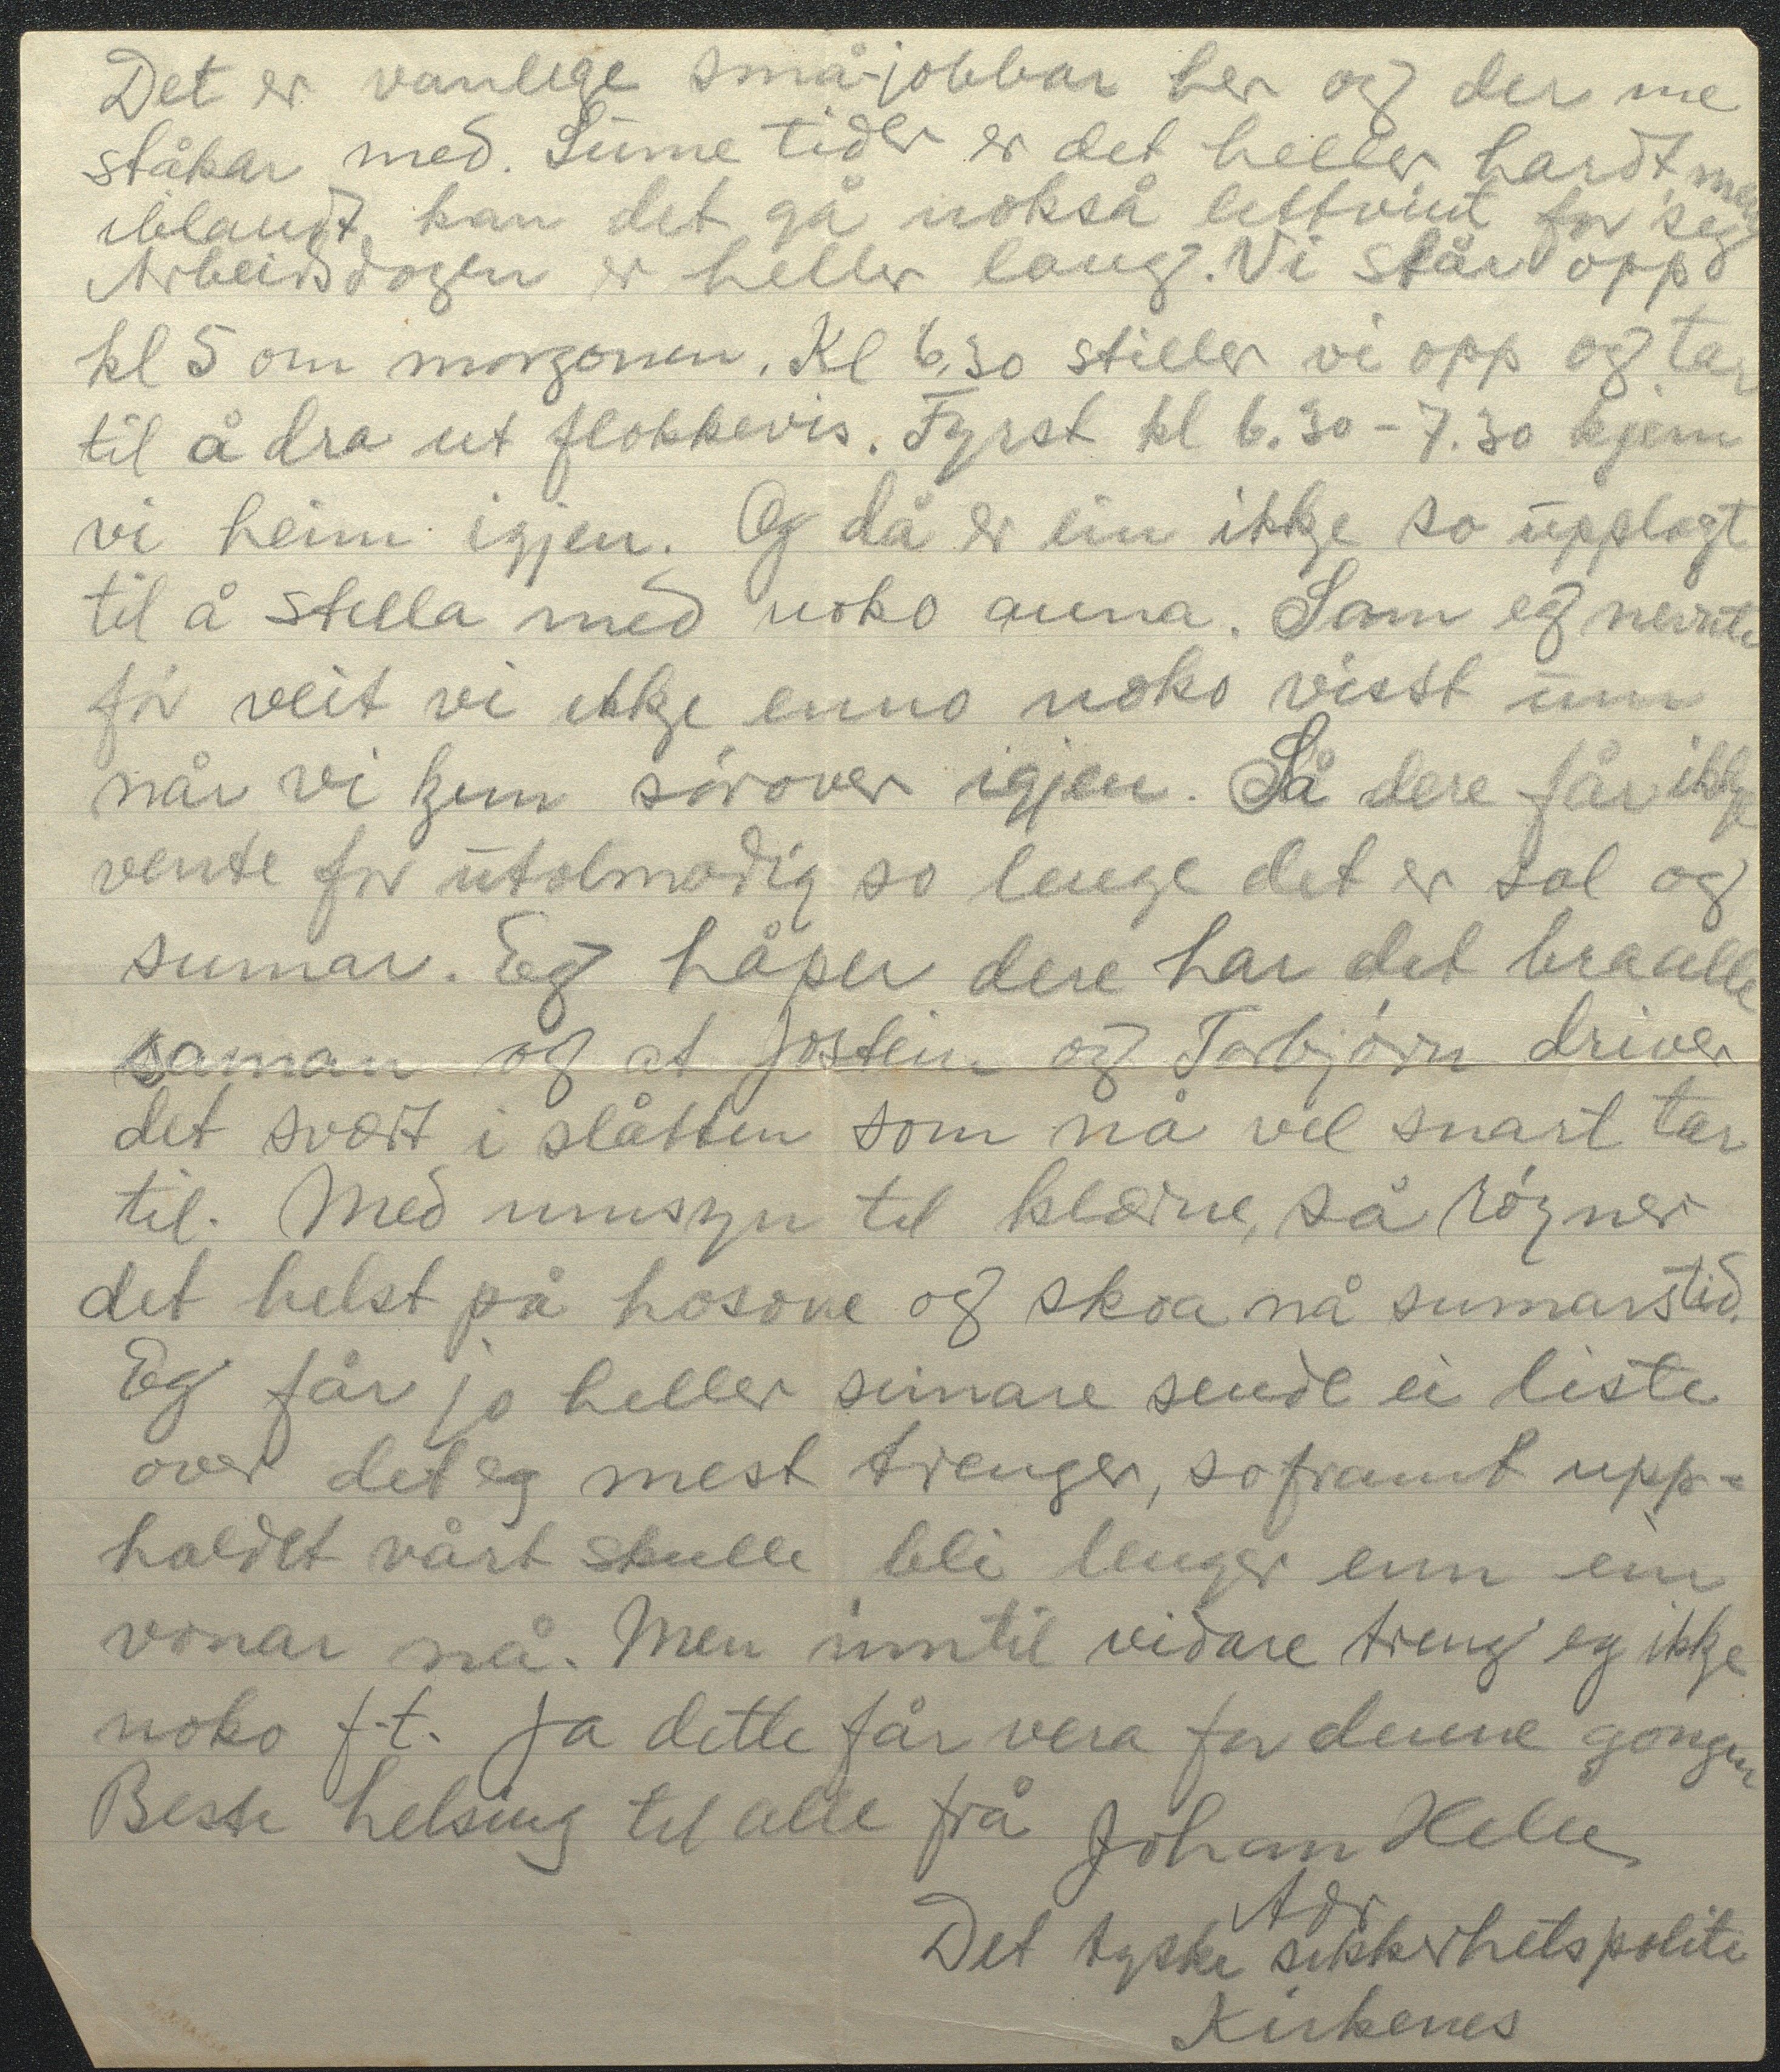 Det er vanlege småjobbar her og der me
ståkar med. Sume tider er det heller hardt, men
iblandt kan det gå nokså lettvint for seg
Arbeidsdagen er heller lang. Vi står opp
kl 5 om morgonen. Kl 6.30 stiller vi opp og tar
til å dra ut flokkevis. Fyrst kl 6.30 - 7.30 kjem
vi heim igjen. Og då er ein ikkje so upplagt
til å stella med noko anna. Som eg nevnte
før veit vi ikkje enno noko visst um
når vi kjem sørover igjen. Så dere får ikkje
vente for utolmodig so lenge det er sol og
sumar. Eg håper dere har det bra alle
saman og at Jostein og Torbjørn driver
det svært i slåtten som nå vel snart tar
til. Med umsyn til klærne, så røyner
det helst på hosone og skoa nå sumarstid.
Eg får jo heller seinare sende ei liste
over det eg mest trenger, soframt upp-
haldet vårt skulle bli lenger enn ein
vonar nå. Men inntil vidare treng eg ikkje
noko f.t. Ja dette får vera for denne gongen
Beste helsing til alle frå Johan Helle
Adr
Det tyske sikkerhetspoliti
Kirkenes